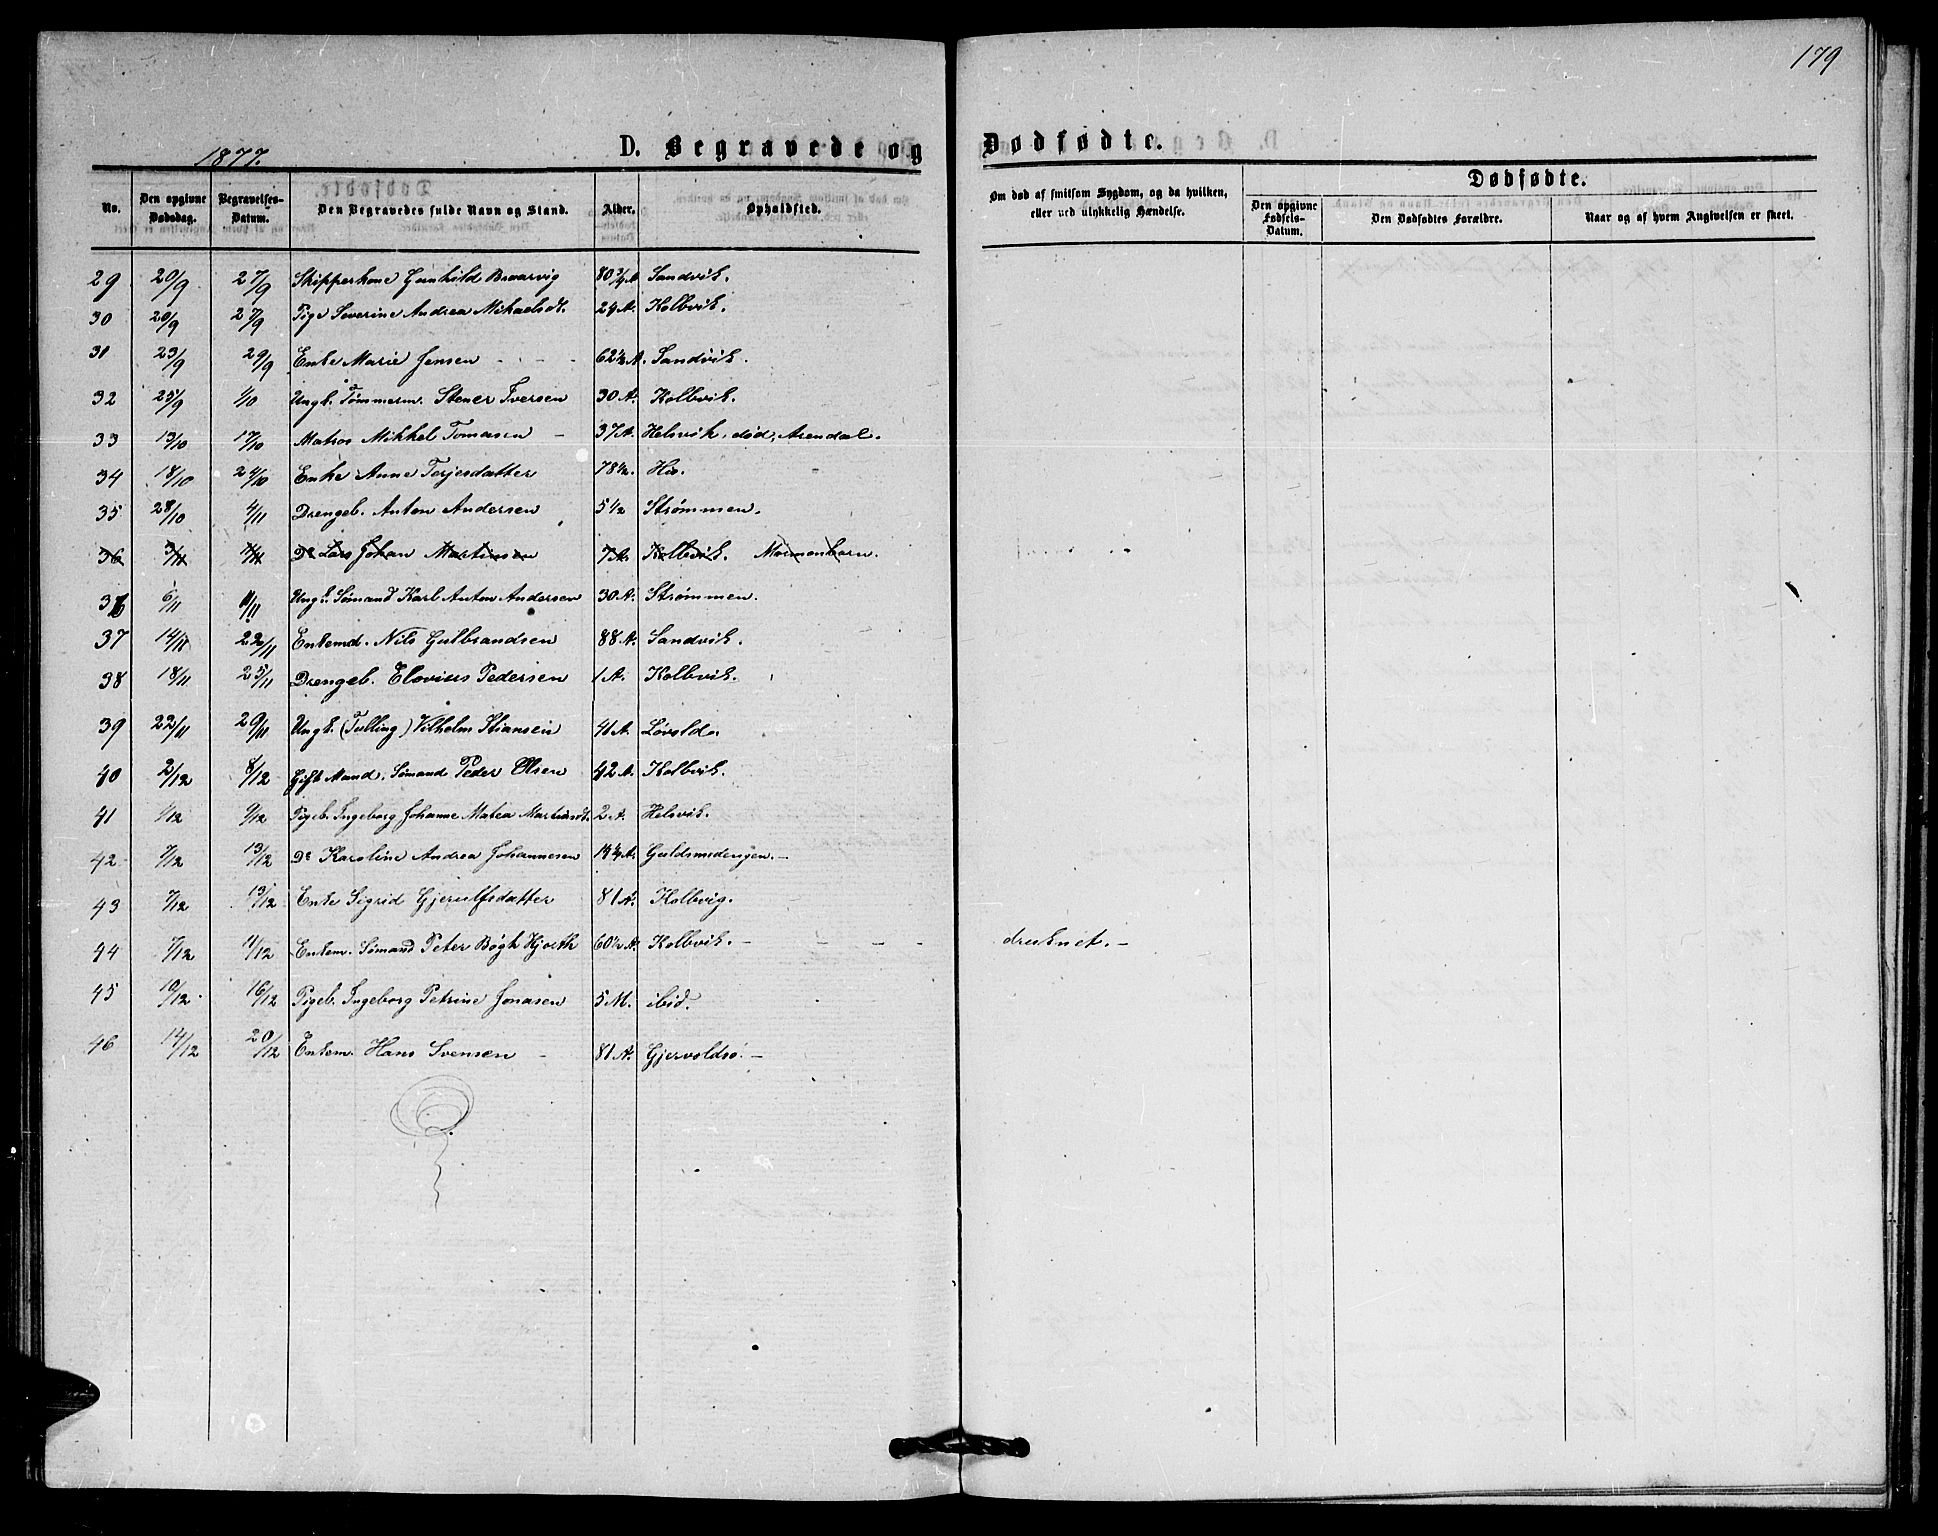 179
1877.
D. Begravede og Dødfødte.
No. Den opgivne Dødsdag. Begravelses-Datum. Den Begravedes fulde Navn og Stand. Alder. Opholdsted. Om død af smitsom Sygdom, og da hvilken, eller ved ulykkelig Hændelse. Dødfødte. Den opgivne Fødsels-Datum. Den Dødfødtes Forældre. Naar og af hvem Angivelsen er skeet.
29 20/9 27/9 Skipperkone Gunhild Braarvig 80 3/4 A Sandvik.
30 20/9 27/9 Pige Severine Andrea Mikaelsdt. 24 A. Kolbvik.
31 23/9 29/9 Enke Marie Jensen 62 1/2 A. Sandvik.
32 25/9 1/10 Ungk. Tømmerm. Stener Iversen 30 A. Kolbvik.
33 13/10 17/10 Matros Mikkel Tomasen – 37 A. Helsvik, død, Arendal.
34 18/10 24/10 Enke Anne Terjesdatter 78 1/2. His.
35 28/10 4/11 Drengeb. Anton Andersen 5 1/2 Strømmen.
36 3/11 11/11 Do Lars Johan Martinsen 7 A. Kolbvik. Mormonbarn.
36 6/11 11/11 Ungk. Sømand Karl Anton Andersen 30 A. Strømmen.
37 14/11 22/11 Enkemd. Nils Gulbrandsen 88 A. Sandvik.
38 18/11 25/11 Drengeb. Elovius Pedersen 1 A. Kolbvik.
39 22/11 29/11 Ungk. (Tulling) Vilhelm Stiansen 41 A. Løvold.
40 2/12 8/12 Gift Mand. Sømand Peder Olsen 42 A. Kolbvik.
41 1/12 9/12 Pigeb. Ingeborg Johanne Matea Martinsdt. 2 A. Helsvik.
42 7/12 13/12 Do Karoline Andrea Johannesen A. Guldsmedengen. –
43 7/12 13/12 Enke Sigrid Gjerulfsdatter 81 A. Kolbvig.
44 7/12 11/12 Enkem. Sømand Peter Bøgh Hjorth 60 1/2 A. Kolbvik. – – – – druknet. –
45 10/12. 16/12 Pigeb. Ingeborg Petrine Jonasen 5 M. ibid.
46 14/12 20/12 Enkem. Hans Svensen – 81 A. Gjervoldsø. –